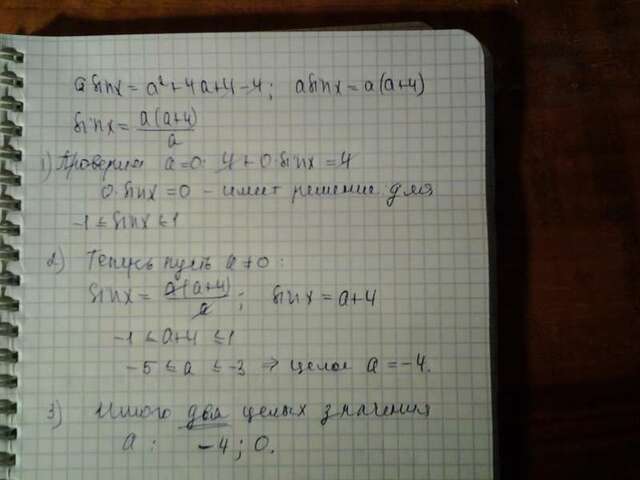 a sinx = a²+4a+4-4; asinx = a(a+4)
sinx = a(a+4)/a
1) Проверим a=0: 4+0·sinx=4
0·sinx=0 - имеет решение для
-1 ≤ sinx ≤ 1
2) Теперь пусть a≠0:
sinx = a(a+4)/a; sinx = a+4
-1 ≤ a+4 ≤ 1
-5 ≤ a ≤ -3 ⇒ целое a = -4.
3) Итого два целых значения
a: -4; 0.